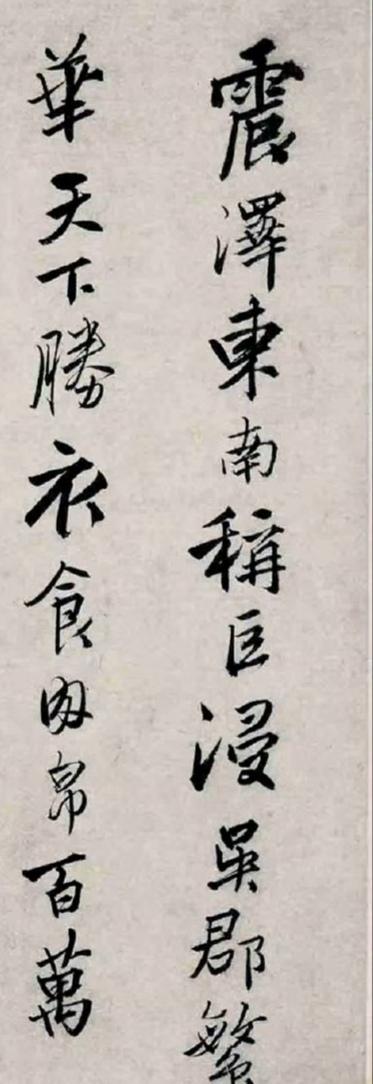 震澤東南稱巨浸吳郡繁
華天下勝衣食肉帛百萬